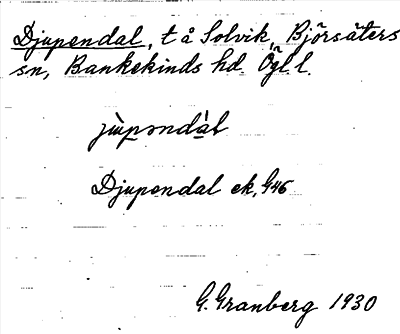 Djupendal, t å Solvik, Björsäters
sn, Bankekinds hd. Ögl.
jùpəndàl
Djupendal ek, G46
G. Granberg 1930